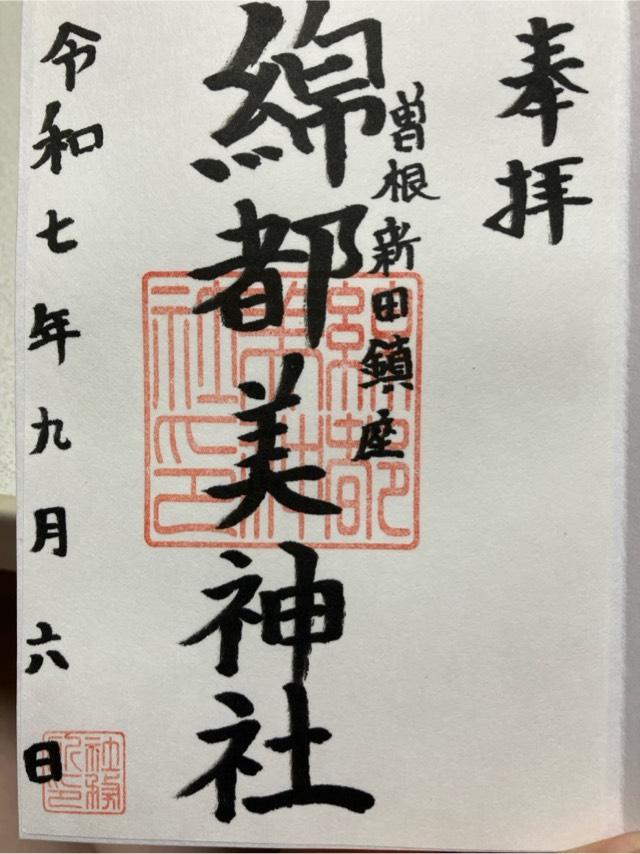 奉拝
曽根新田鎮座
綿都美神社
綿都美神社印
令和七年九月六日
社務所印